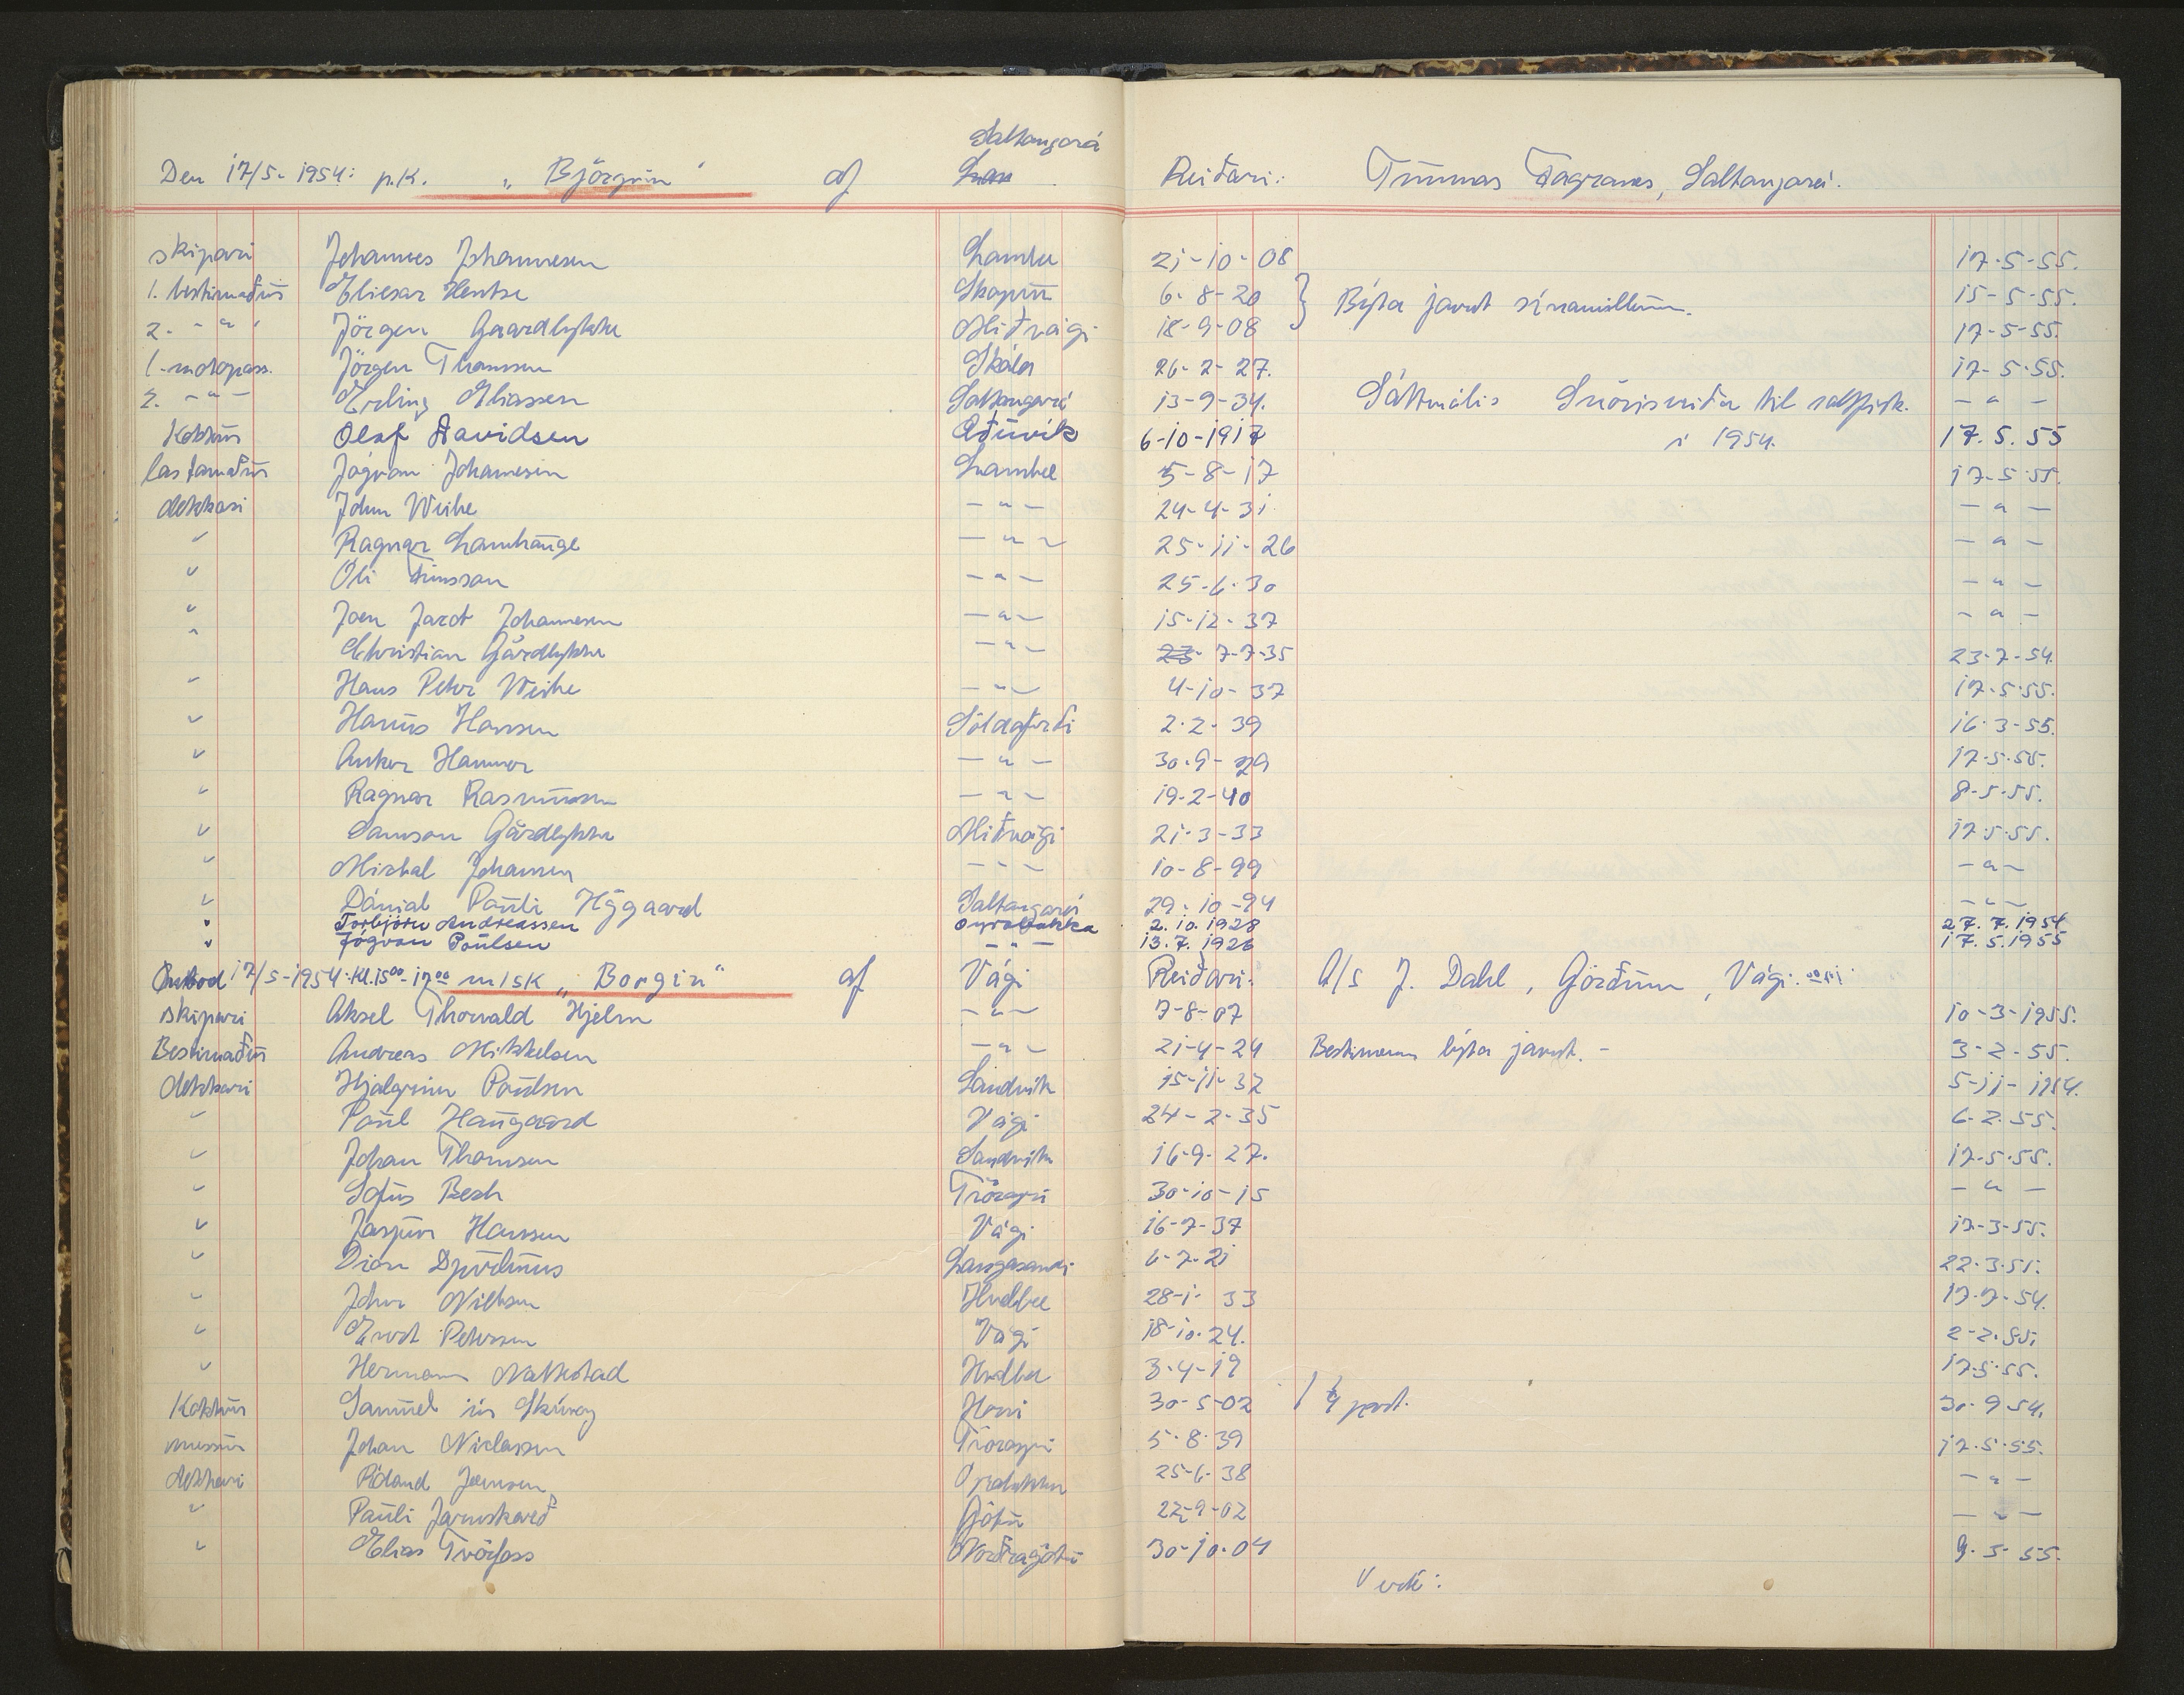 Saltangará
Den 17/5-1954: p.k. „Björgvin" af Reiðari: Tummas Fagranes, Saltangará.
skipari Johannes Johannesen Lamba 21-10-08 17-5-55.
1. bestimaður Eliesar Hentze Skopun 6-8-20 } Býta javnt sínamillum. 15-5-55.
2. -"- Jörgen Gaardlykke Miðvági 18-9-08 17-5-55.
1. motorpass. Jörgen Thomsen Skála 26-2-27. 17-5-55.
2. -"- Erling Eliassen Saltangará 13-9-34. Sáttmális Snörisveiða til saltfisk. -"-
Kokkur Olaf Davidsen Oðuvík 6-10-1917 í 1954. 17.5.55
lastamaður Jógvan Johannesen Lambe 5-8-17 17-5-55.
dekkari John Weihe -"- 24-4-31 -"-
" Ragnar Lamhauge -"- 25-11-26 -"-
" Óli Simonsson -"- 25-6-30 -"-
" Joen Jacob Johannesen -"- 15-12-37 -"-
" Christian Gårdlykke -"- 7-7-35 23-7-54.
" Hans Peter Weihe -"- 4-10-37 17-5-55.
" Hanus Hansen Söldafirði 2-2-39 16-3-55.
" Anker Hammer -"- 30-9-29 17-5-55.
" Ragnar Rasmussen -"- 19-2-40 8-5-55.
" Samson Gårdlykke Miðvági 21-3-33 17-5-55.
" Mickal Johansen -"- 10-8-99 -"-
" Dánial Pauli Höggaard Saltangará 29-10-94 -"-
" Torbjörn Andreassen Oyrabakka 2.10.1928 27.7.1954
" Jógvan Poulsen -"- 13.7.1926 17.5.1955
Ombod 17/5-1954. Kl. 15⁰⁰-17⁰⁰ m/sk „Borgin" af Vági Reiðari: A/s J. Dahl, Görðum, Vági.
skipari Aksel Thorvald Hjelm -"- 7-8-07 10-3-1955.
Bestimaður Andreas Mikkelsen -"- 21-4-24 Bestimenn býta javnt.- 3-2-55.
dekkari Hjalgrim Poulsen Sandvík 15-11-32 5-11-1954.
" Poul Haugaard Vági 24-2-35 6-2-55.
" Johan Thomsen Sandvík 16-9-27. 17-5-55.
" Sofus Bech Tröðum 30-10-15 -"-
" Jaspur Hansen Vági 16-7-37 17-3-55.
" Dion Djurhuus Langasandi 6-7-21 22-3-55.
" John Nielsen Hvalba 28-1-33 17-7-54.
" Evert Petersen Vági 18-10-24. 2-2-55.
" Hermann Nattestad Hvalba 3-4-19 17-5-55.
Kokkur Samuel úr Skúvoy Hovi 30-5-02 1 1/4 part. 30-9-54.
messur Johan Niclassen 5-8-39 17-5-55.
dekkari Róland Joensen Oyrabakka 25-6-38 -"-
" Pauli Jarnskorð Götu 22-9-02 -"-
" Elias Tvörfoss Norðragötu 30-10-04 9-5-55.
Vend: